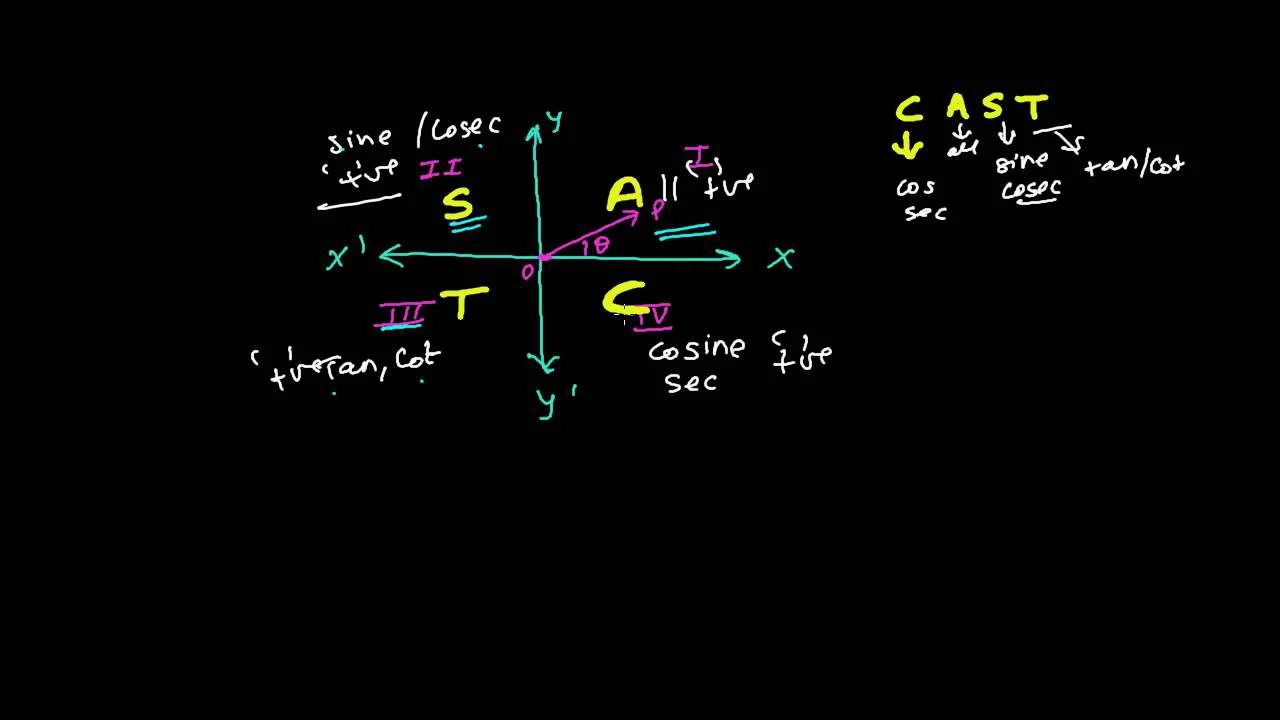 C A S T
cos
sec
all
sine
cosec
tan/cot
y
sine /cosec
'+'ve II
S
I
A ll '+'ve
P
θ
x'
O
x
III T
C IV
'+'ve Tan, Cot
cosine '+'ve
sec
y'